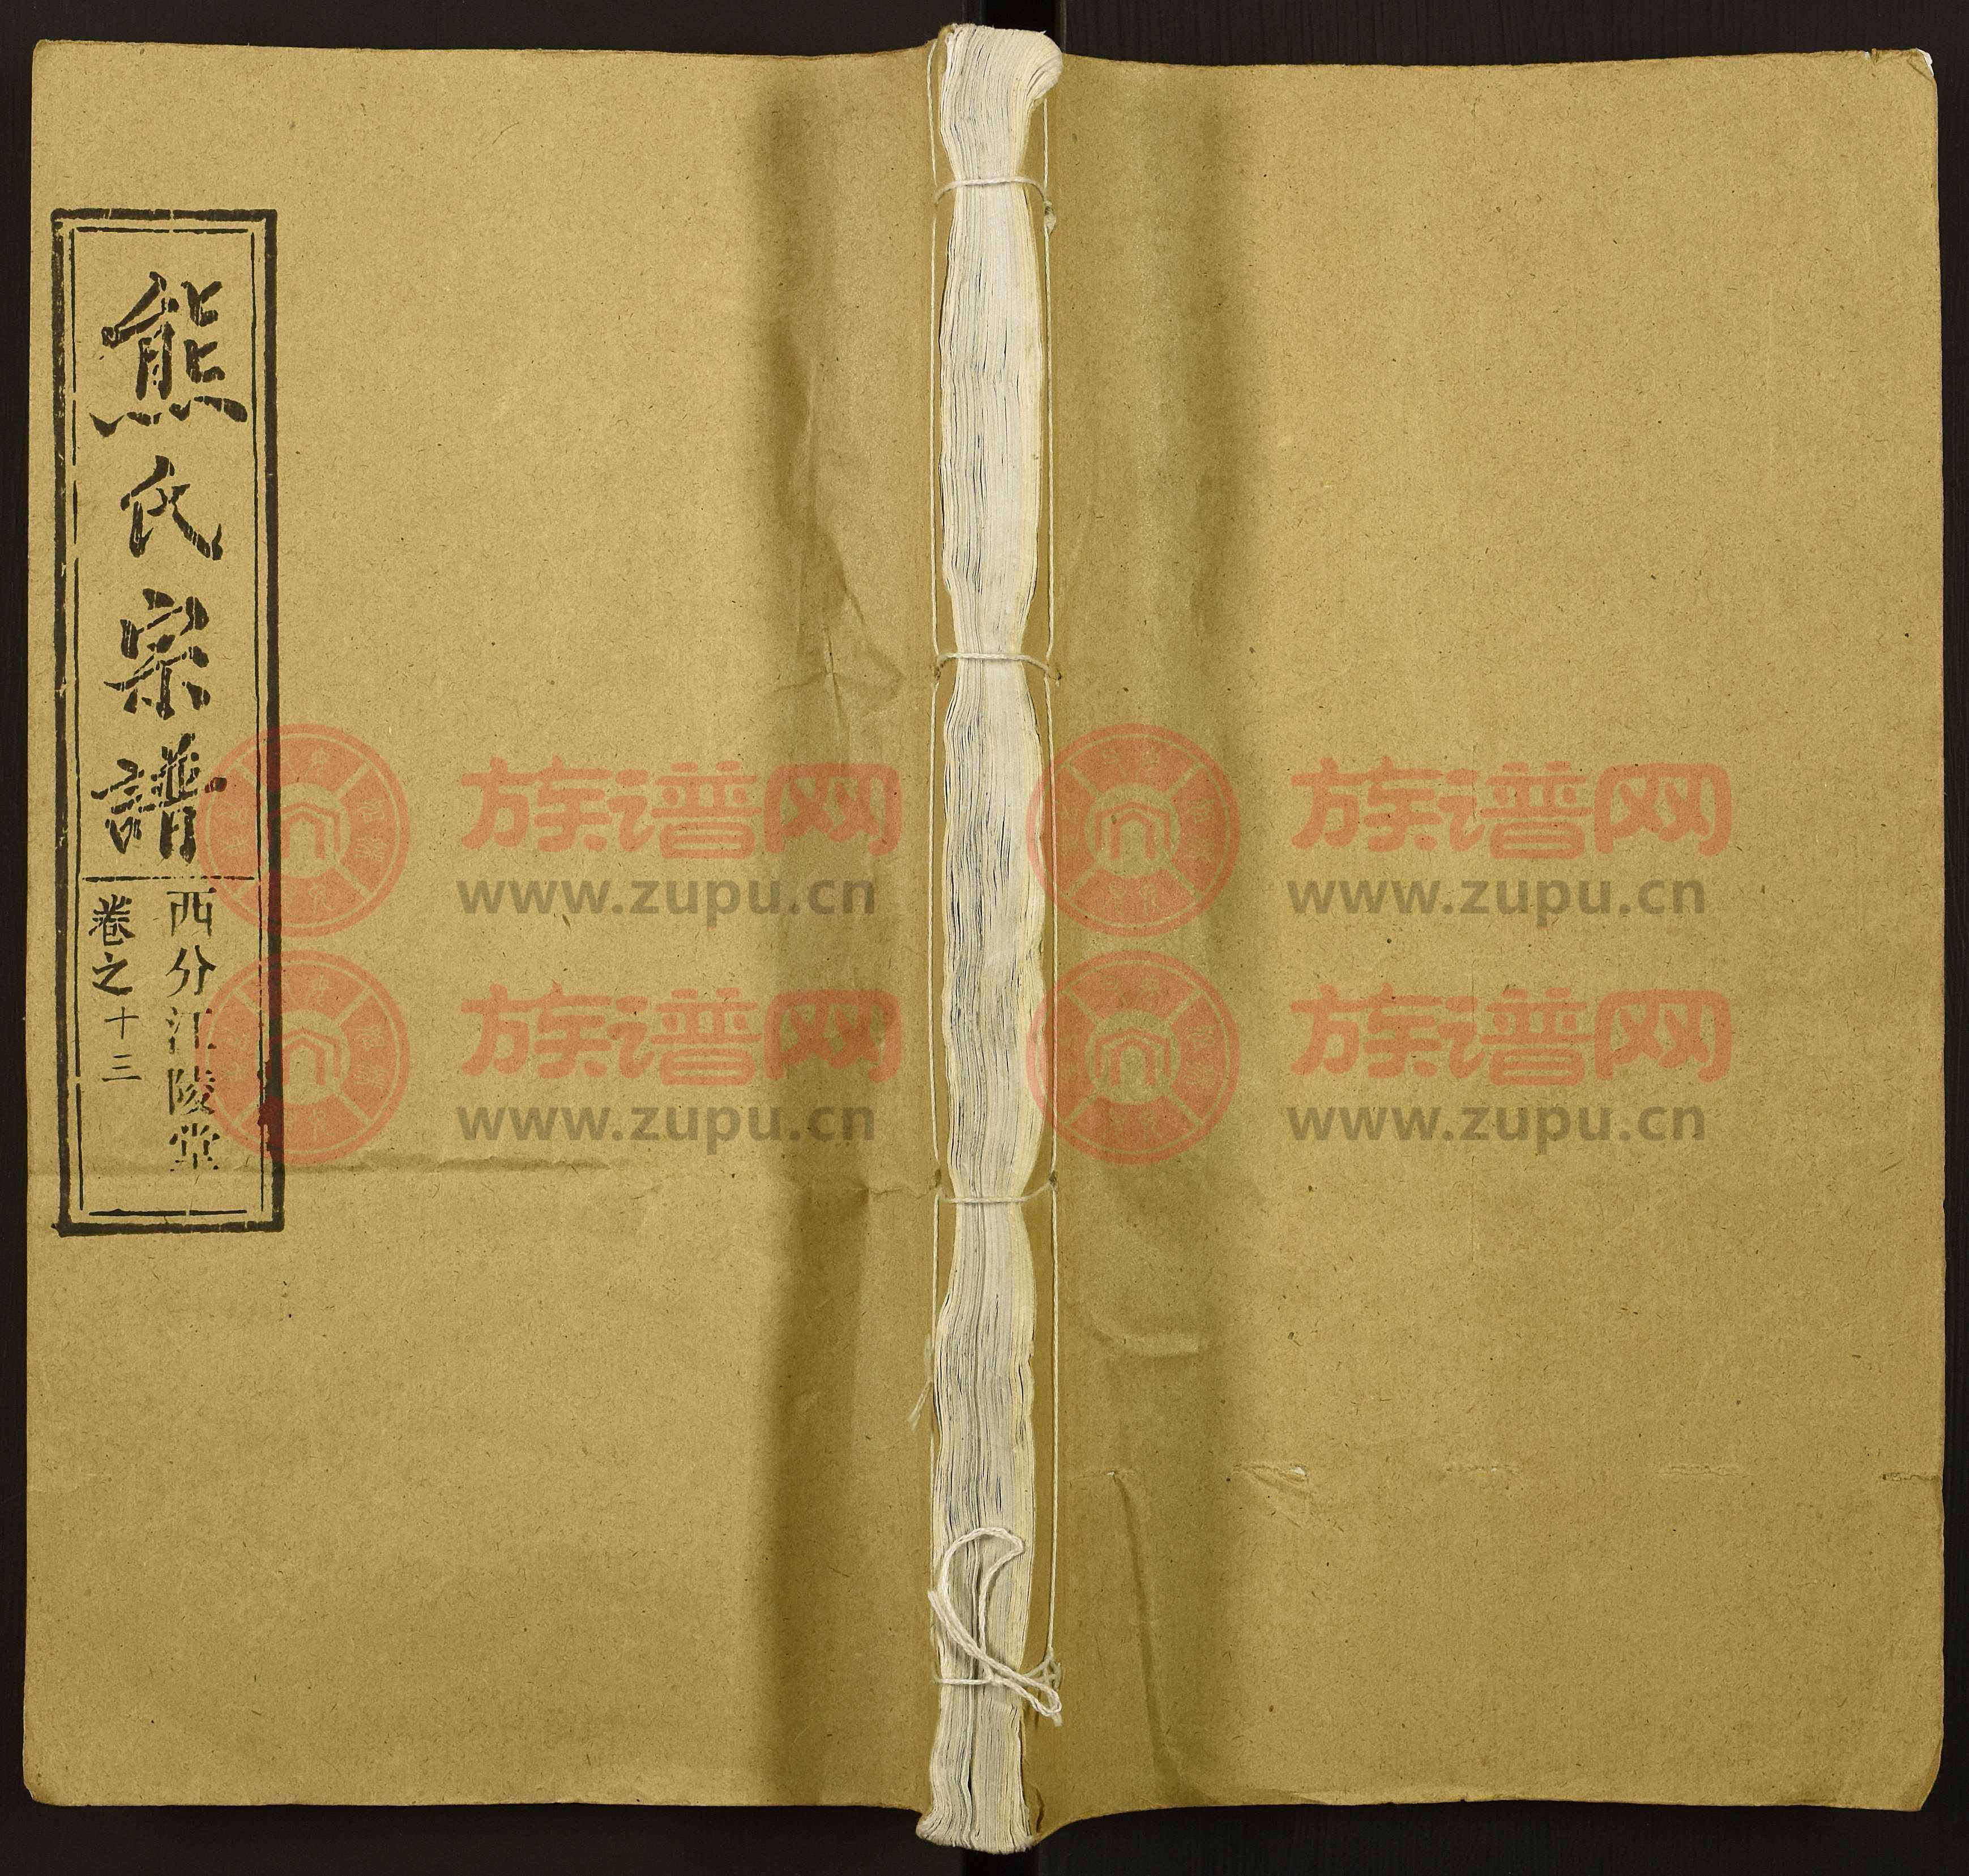 熊氏宗譜
西分江陵堂
卷之十三
族谱网
www.zupu.cn
族谱网
www.zupu.cn
族谱网
www.zupu.cn
族谱网
www.zupu.cn